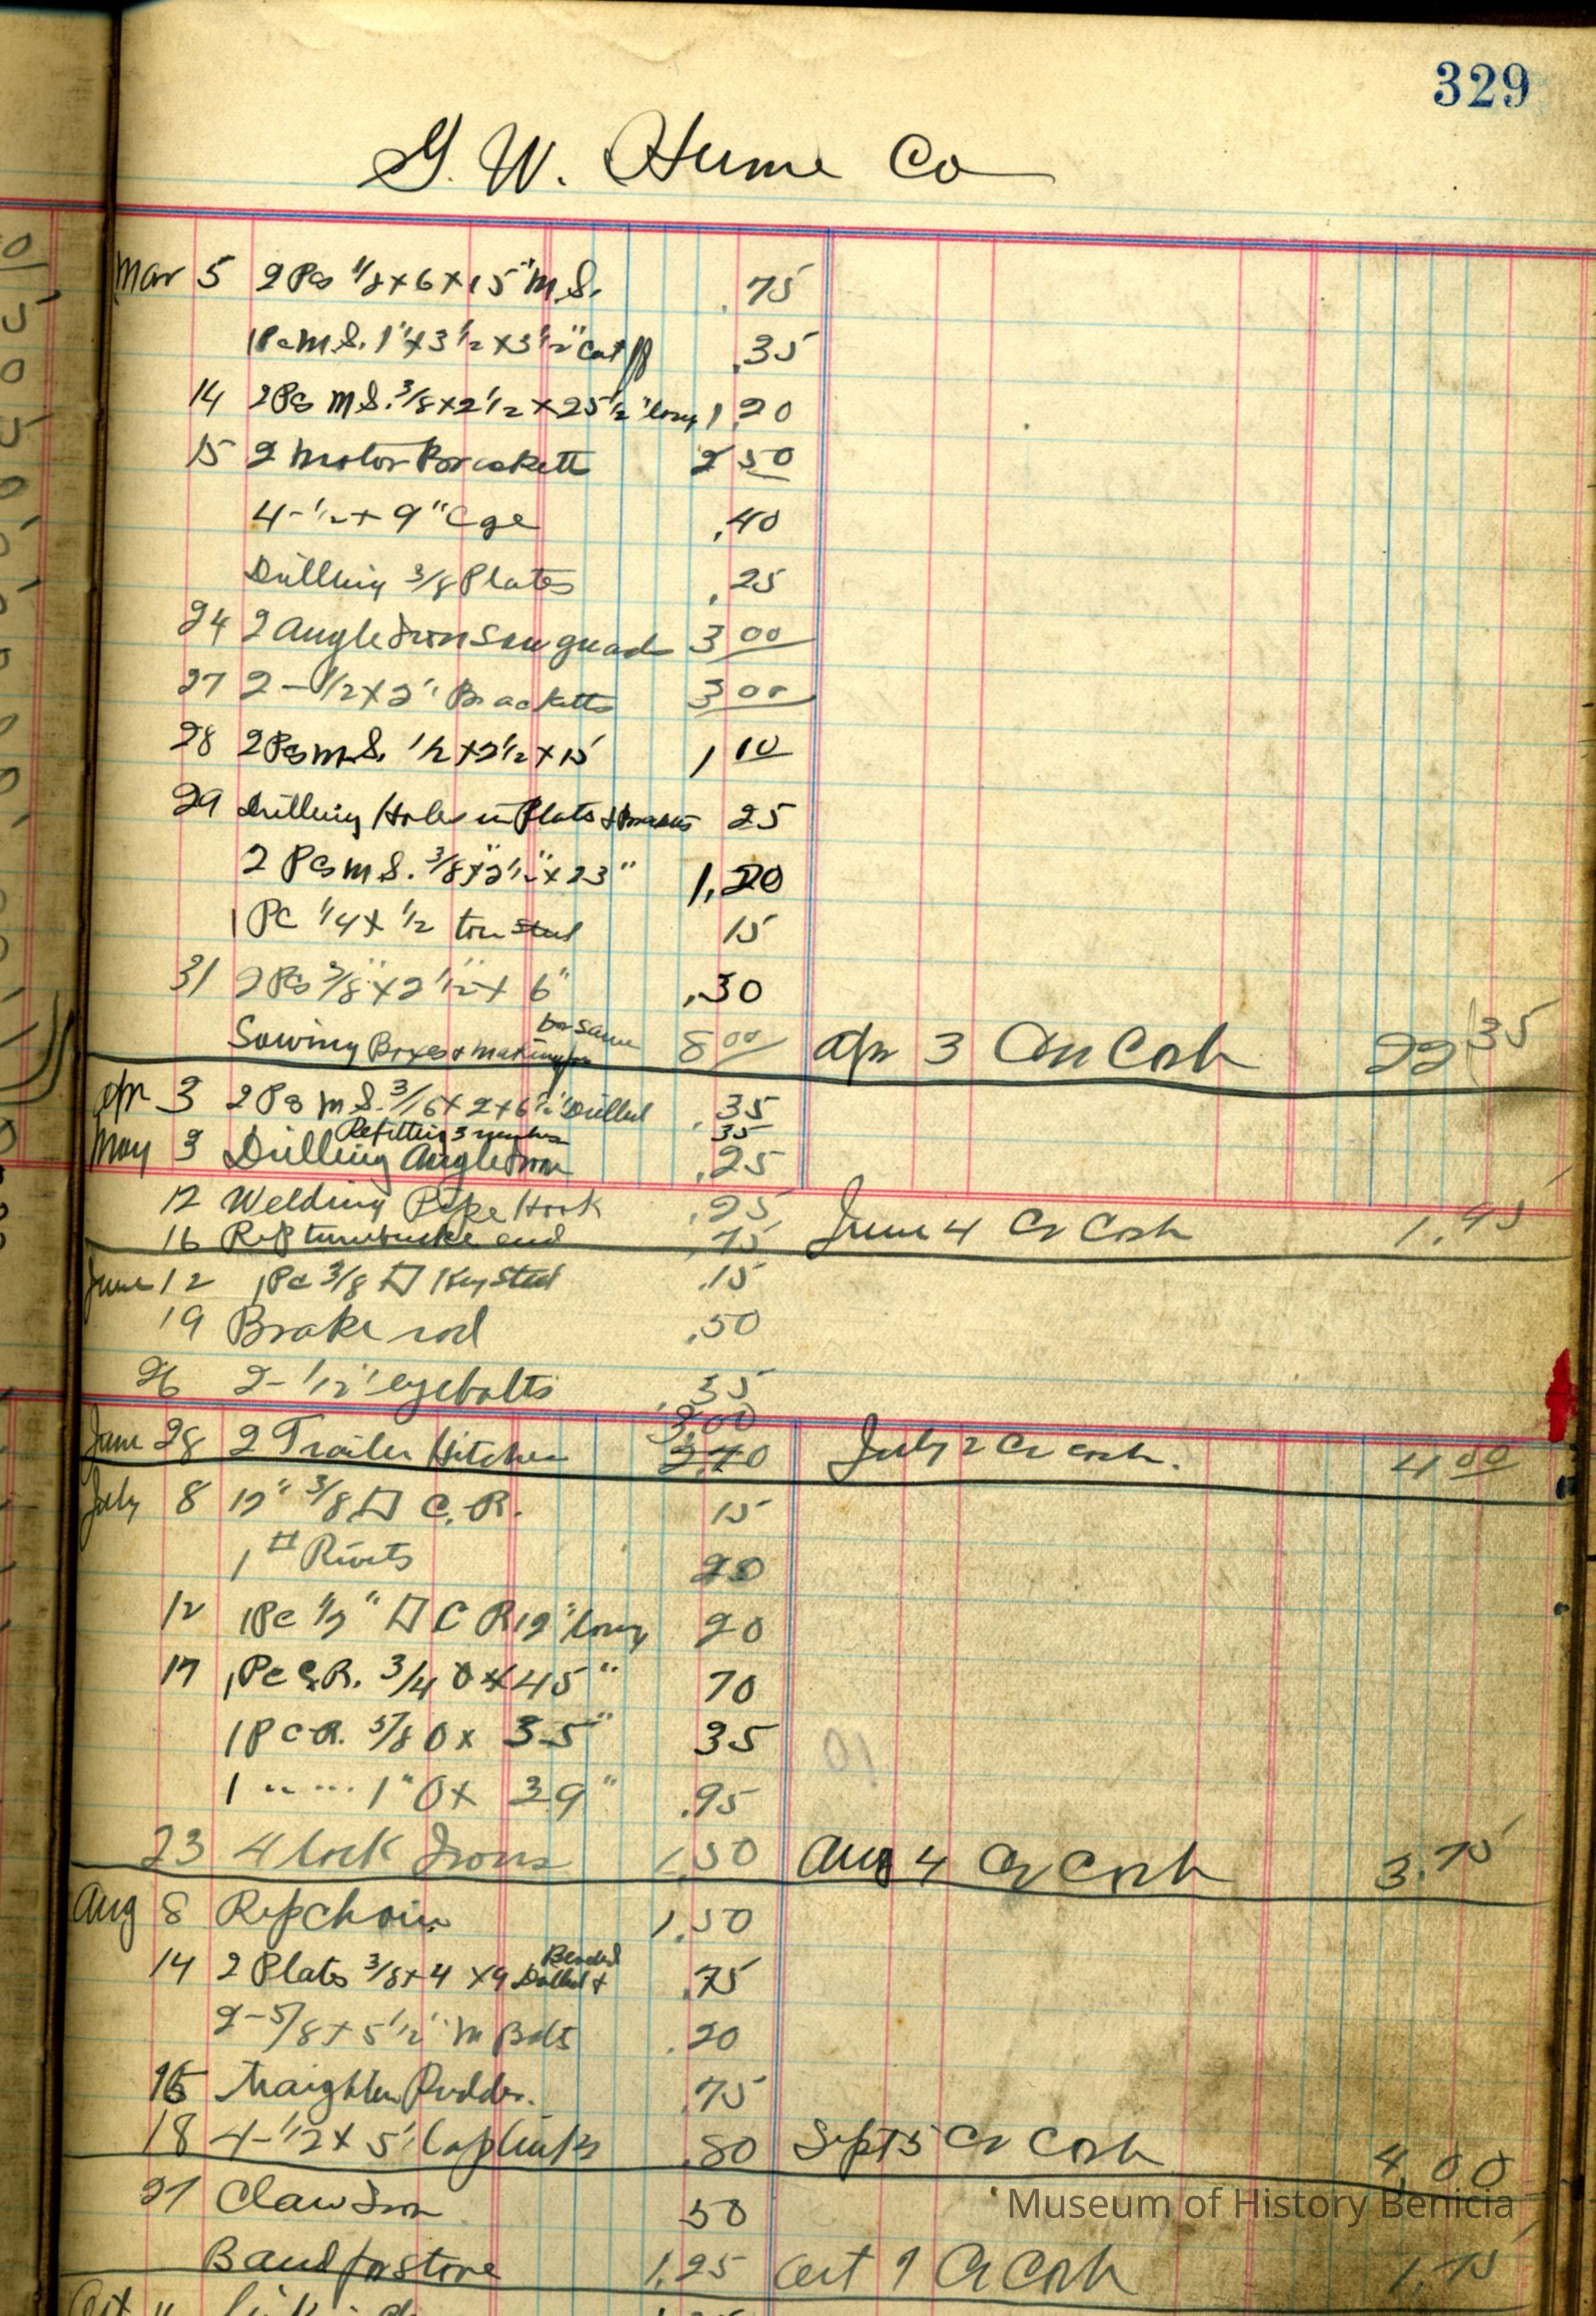 329
G. W. Hume Co
Mar 5 2 Pcs 1/8 x 6 x 15" M.S. .75
1 Pc M.S. 1" x 3 1/2 x 3 1/2" Cut off .35
14 2 Pcs M.S. 3/8 x 2 1/2 x 25 1/2" long 1.20
15 2 Motor Brackett 2 50
4 - 1/2 x 9" Cge .40
Drilling 3/8 Plates .25
24 2 Angle Iron Saw guard 3 00
27 2 - 1/2 x 2" Bracketts 3 00
28 2 Pcs M.S. 1/2 x 2 1/2 x 15 1 10
29 Drilling Holes in Plats + 25
2 Pcs M.S. 3/8" x 2 1/2" x 23" 1.20
1 Pc 1/4 x 1/2 tow Steel 15
31 2 Pcs 3/8" x 2 1/2" x 6" .30
Sawing Boxes + making for same 8 00 Apr 3 Cr Cash 22 35
Apr 3 2 Pcs M.S. 3/16 x 2 x 6 1/2" Drilled .35
Refitting 3 35
May 3 Drilling Angle Iron .25
12 Welding Pipe Hook .25 June 4 Cr Cash 1.45
16 Rep turnbuckle end
June 12 1 Pc 3/8 □ Key Steel .15
19 Brake rod .50
26 2 - 1/2" eyebolts .35
3.00
June 28 2 Trailer Hitches 2.70 July 2 Cr Cash. 4 00
July 8 12" 3/8 □ C.R. 15
1 # Rivets 20
12 1 Pc 1/2" □ C R 12" long 20
17 1 Pc C.R. 3/4 O x 45" 70
1 P C.R. 5/8 O x 35" 35
1 " " 1" O x 39" .95
23 4 lock Irons 1.50 Aug 4 Cr Cash 3.75
Aug 8 Rep Chain 1.50
14 2 Plats 3/8 x 4 x 9 Drilled + Bended .75
2 - 5/8 x 5 1/2" M Bolts .20
15 Straighten Rudder. .75
18 4 - 1/2 x 5" laplinks .80 Sept 5 Cr Cash 4.00
27 Claw Iron 50
Band for stove 1.25 Oct 9 Cr Cash 1.75
Museum of History Benicia